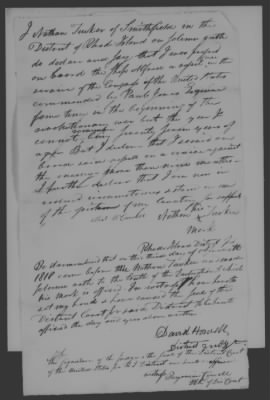 I Nathan Tucker of Smithfield in the
District of Rhode Island on solemn oath
do declare and say, that I was
on board the Ship Alfred a vessel in the
service of the Congress of the United States
commanded by
from time in the beginning of the
revolutionary war but the year I
cannot being seventy seven years of
age. But I declare that I served on
board said vessel on a cruise against
the enemy more than nine months
I further declare that I am now in
reduced circumstances & stand in need
of the of my Country for support
Nathan his Tucker
Mark
Rhode Island District
Be it remembered on the third day of
1818 came before me Nathan Tucker
solemn oath to the truth of the Declaration to which
his Mark is affixed. In testimony I have hereto
set my hand & have caused the Seal of the
District Court for said District to be hereto
affixed the day and year above written
David Howell
District Judge
The signature of the Judge & the Seal of the District Court
of the United States for R I District
Benjamin Cowell
Clk of Dis Court